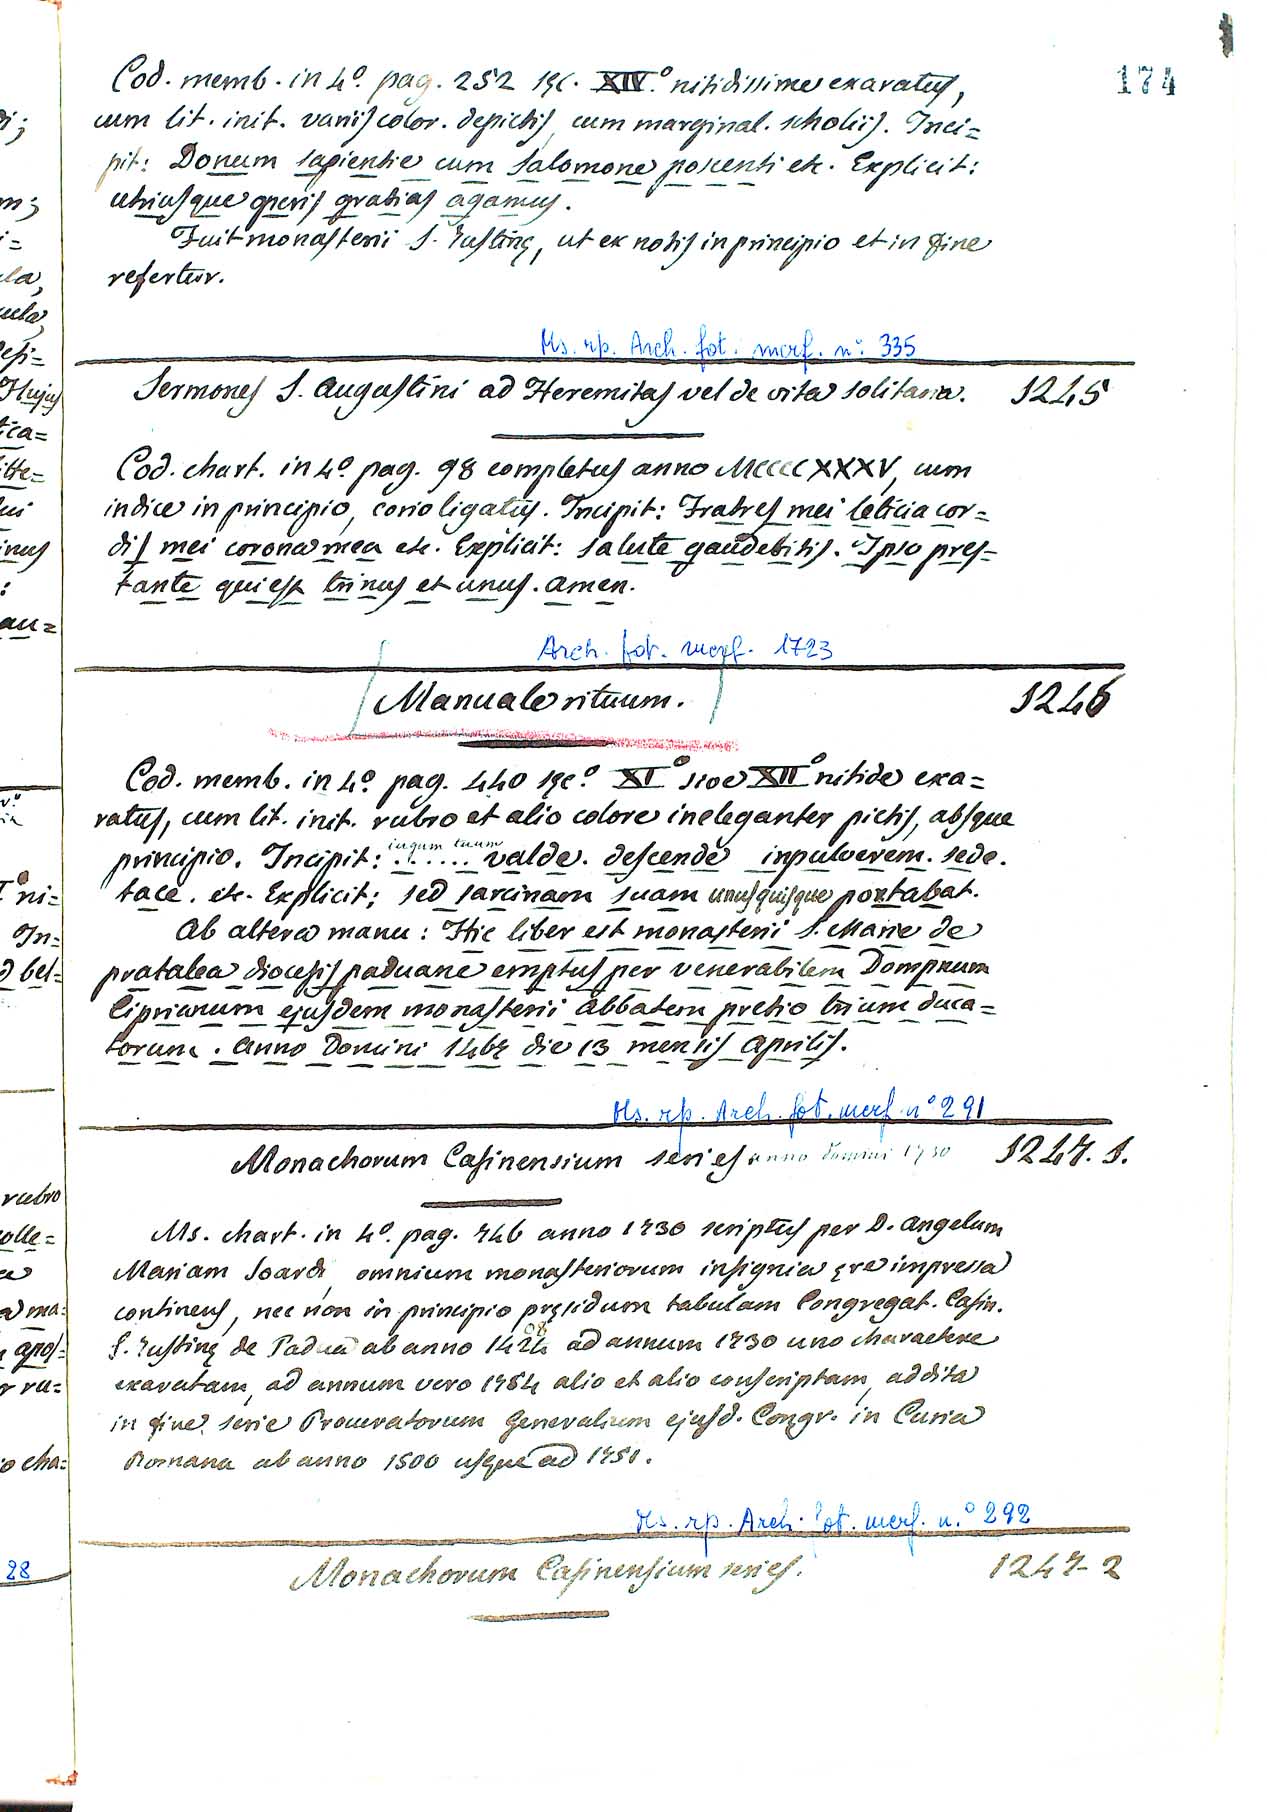 174
Cod. memb. in 4º. pag. 252 sęc. XIVº. nitidissime exaratus,
cum lit. init. variis color. depictis, cum marginal. scholiis. Inci=
pit: Donum sapientie cum Salomone poscenti etc. Explicit:
utriusque operis gratias agamus.
Fuit monasterii S. Iustinę, ut ex notis in principio et in fine
refertur.
Ms. rp. Arch. fot. merf. nº. 335
Sermones S. Augustini ad Heremitas vel de vita solitaria. 1245
Cod. chart. in 4º. pag. 98 completus anno MCCCCXXXV, cum
indice in principio, corio ligatus. Incipit: Fratres mei leticia cor=
dis mei corona mea etc. Explicit: salute gaudebitis. Ipso pres=
tante qui est trinus et unus. Amen.
Arch. fot. merf. 1723
Manuale rituum. 1246
Cod. memb. in 4º. pag. 440 sęcº. XIº sive XIIº nitide exa=
ratus, cum lit. init. rubro et alio colore ineleganter pictis, absque
iugum tuum
principio. Incipit: ...... valde. descende in pulverem. sede.
tace. etc. Explicit; sed sarcinam suam unusquisque portabat.
Ab altera manu: Hic liber est monasterii S. Marie de
pratalea diocesis paduane emptus per venerabilem Dompnum
Ciprianum ejusdem monasterii Abbatem pretio trium duca=
torum. Anno Domini 1467 die 13 mensis Aprilis.
Ms. rp. Arch. fot. merf. nº 291
Monachorum Casinensium series anno domini 1730 1247. 1.
Ms. chart. in 4º. pag. 746 anno 1730 scriptus per D. Angelum
Mariam Soardi, omnium monasteriorum insignia ęre impressa
continens, nec non in principio pręsidum tabulam Congregat. Casin.
08
S. Iustinę de Padua ab anno 1424 ad annum 1730 uno charactere
exaratam, ad annum vero 1784 alio et alio conscriptam, addita
in fine serie Procuratorum Generalium ejusd. Congr. in Curia
Romana ab anno 1500 usque ad 1751.
Ms. rp. Arch. fot. merf. n.º 292
Monachorum Casinensium series. 1247-2
28